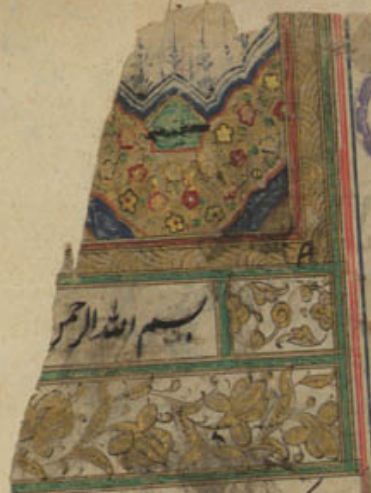 A
بسم الله الرحمن